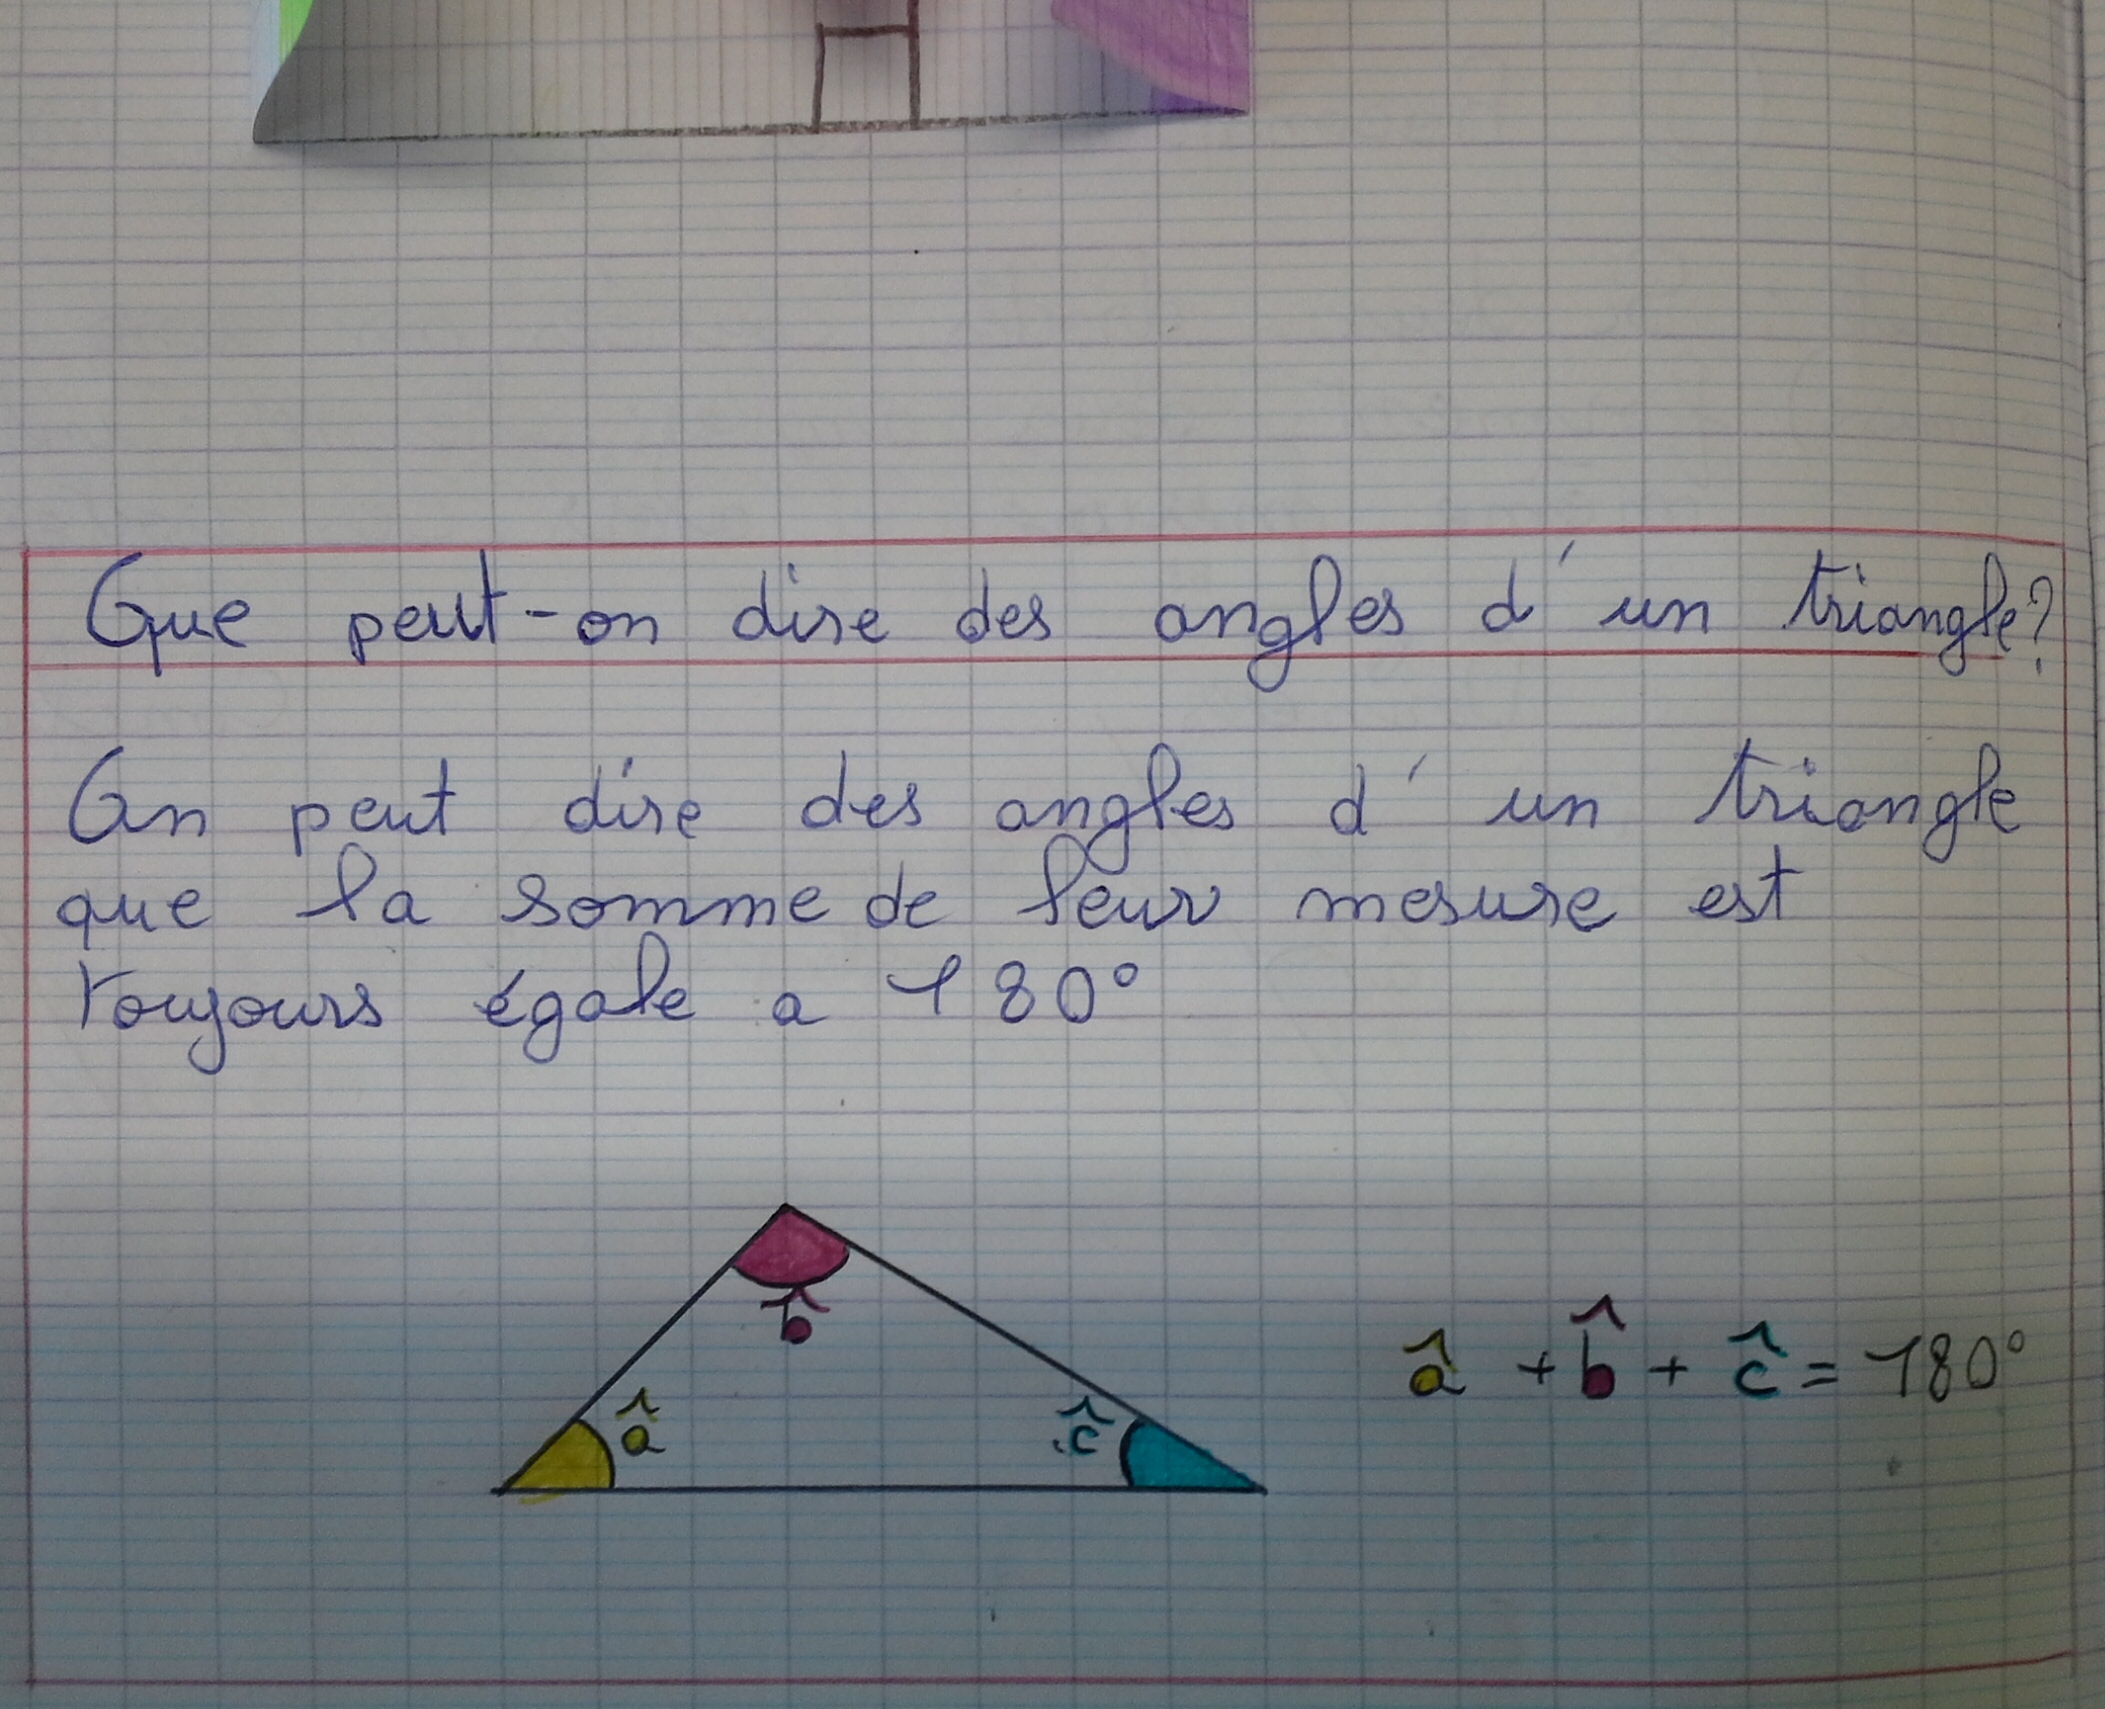 Que peut-on dire des angles d'un triangle?
On peut dire des angles d'un triangle
que la somme de leur mesure est
toujours égale a 180°
b̂
â
ĉ
â + b̂ + ĉ = 180°